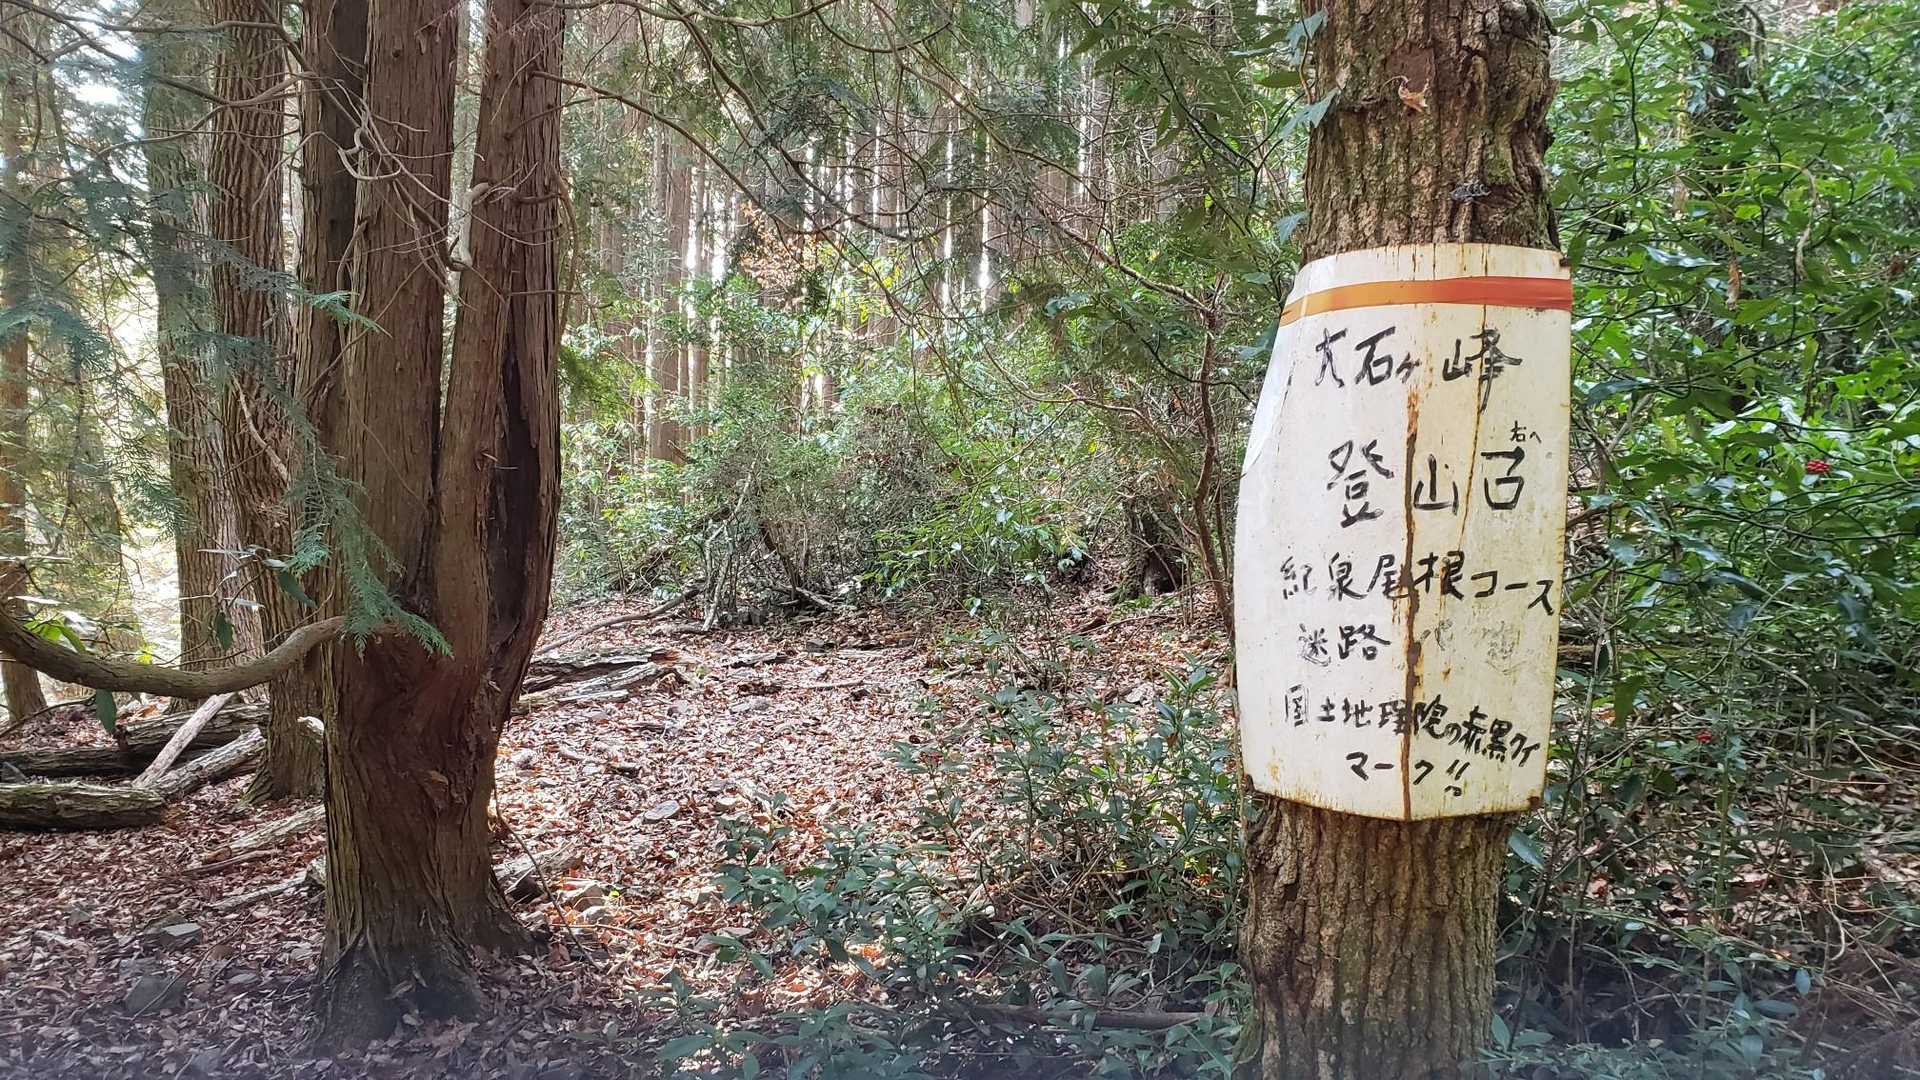 大石ヶ峰
右へ
登山口
紀泉尾根コース
迷路
国土地理院の赤黒クイ
マーク!!